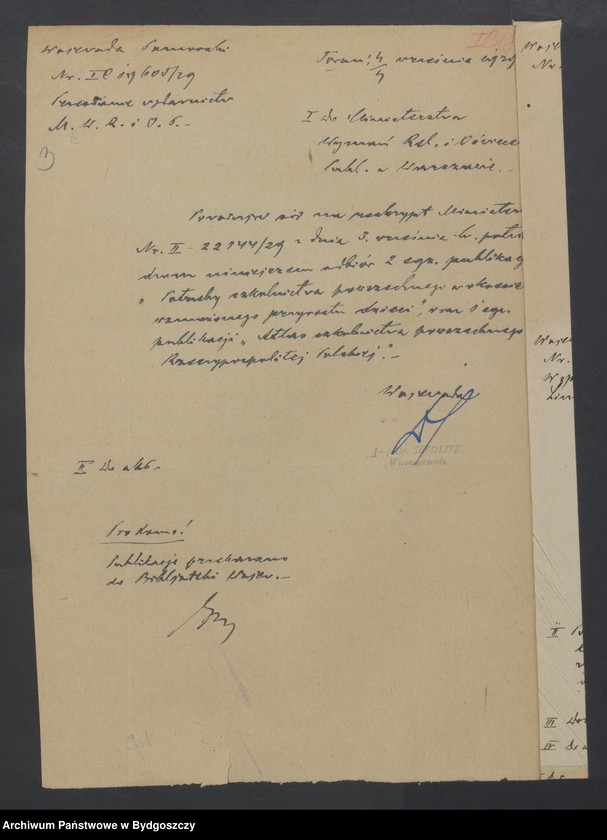 Wojewoda Pomorski
Nr. I C 19/605/29
Przesłanie wydawnictw
M. W. R. i O. P. -
3
Toruń, 4/9 września 1929
I Do Ministerstwa
Wyznań Rel. i Oświec
Publ. w Warszawie. -
Powołując się na reskrypt Minister
Nr. II - 22144/29 z dnia 3. września br. potw
dzam niniejszem odbiór 2 egz. publikacj
"Potrzeby szkolnictwa powszechnego w okresie
wzmożonego przyrostu dzieci", oraz 1 egz.
publikacji "Atlas szkolnictwa powszechnego
Rzeczypospolitej Polskiej". -
Wojewoda
SEYDLITZ
Wicewojewoda
II Do akt. -
Pro domo!
Publikacje przekazano
do Bibljoteki Wojew. -
Woje
Nr.
Woje
Nr.
II
III Do
IV Do a
Archiwum Państwowe w Bydgoszczy